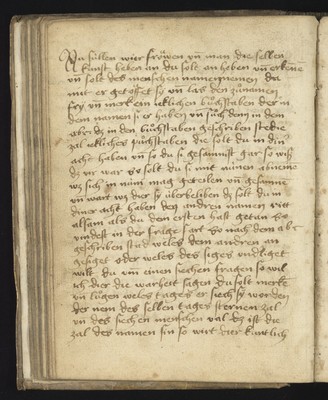 Nu süllen wier frowen vn man die selben
kunst haben an du solt an haben vn erkene
vn solt des menschen namen nemen du
mit er getoffet sy vn las den zunamen
fry vn merk ein iklichen buchstaben der in
dem namen si er haben vn such den in dem
aber dz in den buchstaben geschriben stet die
zal iklichers puchstaben die solt du in din
acht haben vn so du si gesamnist gar so wiss
dz vir war so solt du si mit nunen abneme
wz sich in nun mag geteilen vn gesamne
vn wart wz dier sy überbeliben dz solt du in
diner acht haben den andren namen viert
alsam als du den ersten hast getan so
vindest in der frage fart so nach dem abc
geschriben stand weles dem andren an
gesiget oder weles des siges undliget
wilt du vm einen siechen fragen so wil
ich dier die warheit sagen du solt merke
vn lugen weles tages er siech sy worden
der nem des selben tages sternen zal
vn des siechen menschen zal dz ist die
zal des namen sin so wirt dier kuntlich